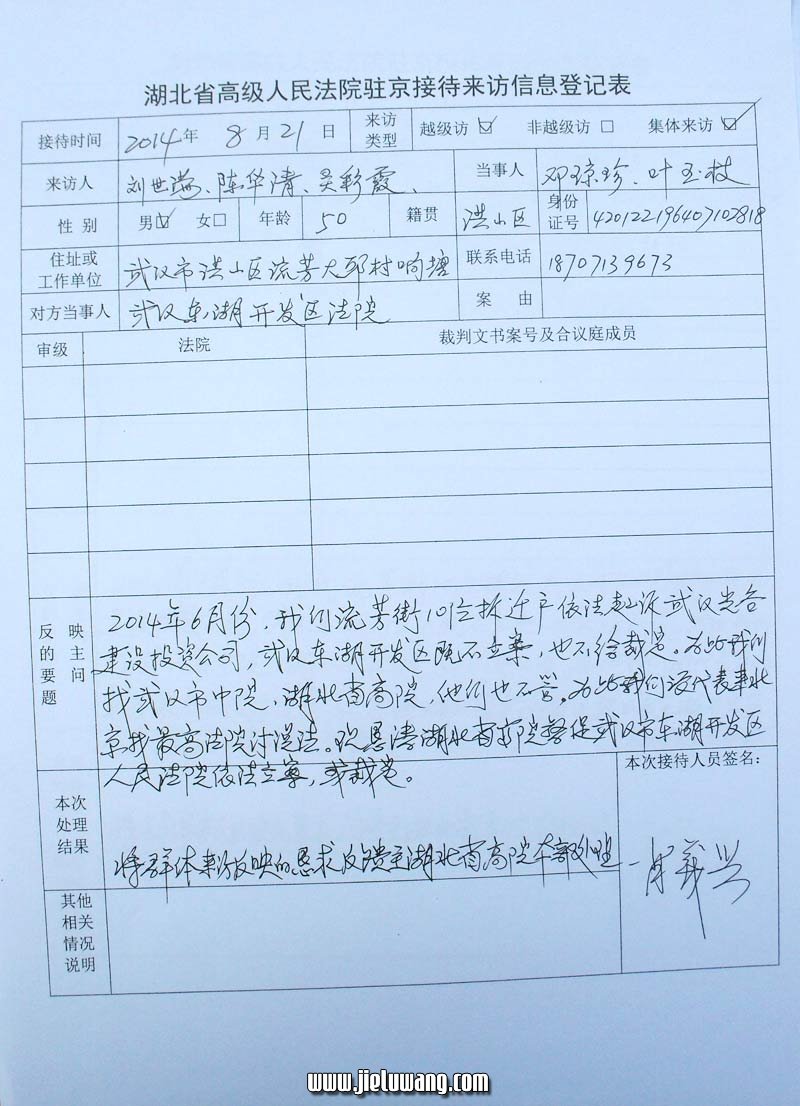 湖北省高级人民法院驻京接待来访信息登记表
接待时间 2014年 8月21日 来访类型 越级访 ☑ 非越级访 □ 集体来访 ☑
来访人 刘世 、陈华清、吴彩霞、 当事人 邓琼珍、叶玉枝
性别 男☑ 女□ 年龄 50 籍贯 洪山区 身份证号 420122196407102818
住址或工作单位 武汉市洪山区流芳大邱村响塘 联系电话 18707139673
对方当事人 武汉东湖开发区法院 案由
审级 法院 裁判文书案号及合议庭成员
反映的主要问题
2014年6月份，我们流芳街10位拆迁户依法起诉武汉光谷
建设投资公司，武汉东湖开发区既不立案，也不给裁定。为此我们
找武汉市中院，湖北省高院，他们也不管。为此我们派代表来北
京找最高法院讨说法。现恳请湖北省高院督促武汉市东湖开发区
人民法院依法立案，或裁定。
本次处理结果
将群体来访反映的恳求反馈至湖北省高院本部处理
本次接待人员签名：
义兴
其他相关情况说明
www.jieluwang.com